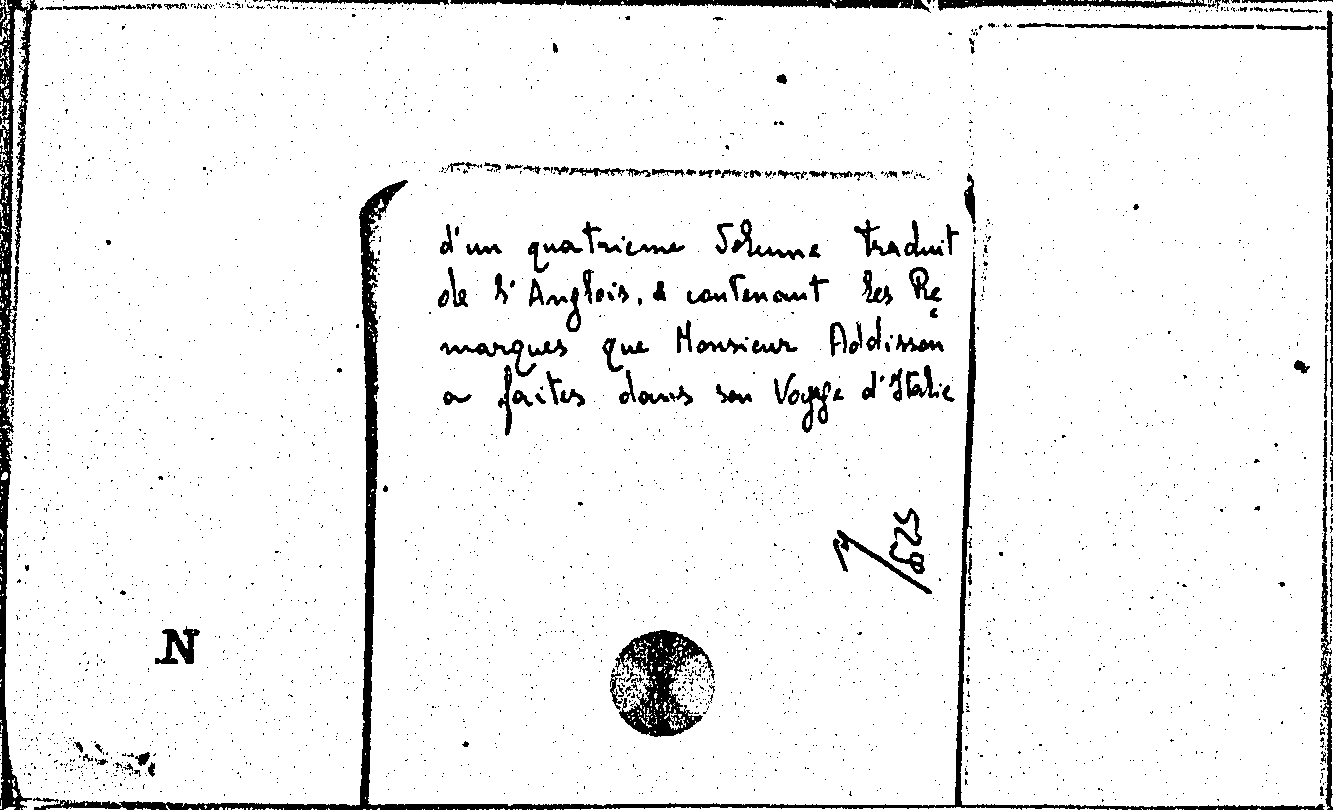 d'un quatrieme Volume traduit
de l'Anglois, & contenant les Re
marques que Monsieur Addisson
a faites dans son Voyage d'Italie
N